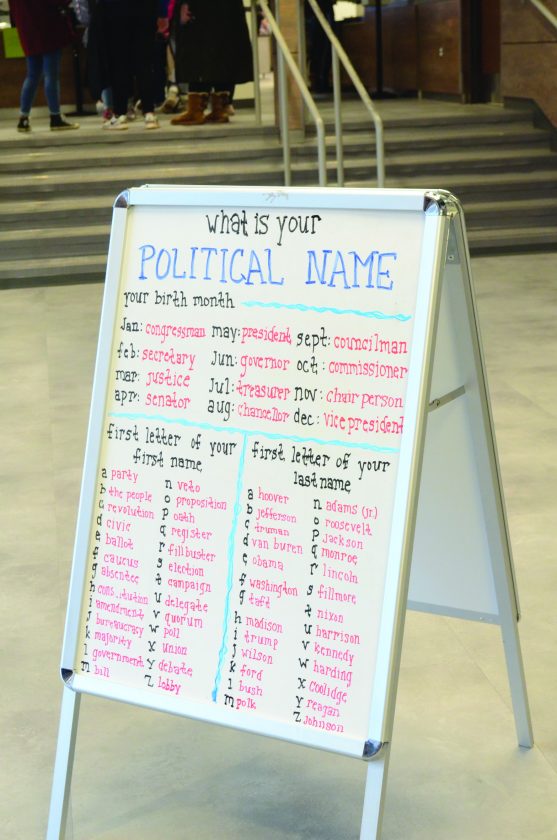 what is your
POLITICAL NAME
your birth month
Jan: congressman
feb: secretary
mar: justice
apr: senator
may: president
Jun: governor
Jul: treasurer
aug: chancellor
sept: councilman
oct: commissioner
nov: chair person
dec: vice president
first letter of your
first name
a party
b the people
c revolution
d civic
e ballot
f caucus
g absentee
h
i amendments
j bureaucracy
k majority
l government
m bill
n veto
o proposition
p oath
q register
r fillbuster
s election
t campaign
u delegate
v quorum
w poll
x union
y debate
z lobby
first letter of your
last name
a hoover
b jefferson
c truman
d van buren
e obama
f washington
g taft
h madison
i trump
j wilson
k ford
l bush
m polk
n adams (jr.)
o roosevelt
p jackson
q monroe
r lincoln
s fillmore
t nixon
u harrison
v kennedy
w harding
x coolidge
y reagan
z johnson